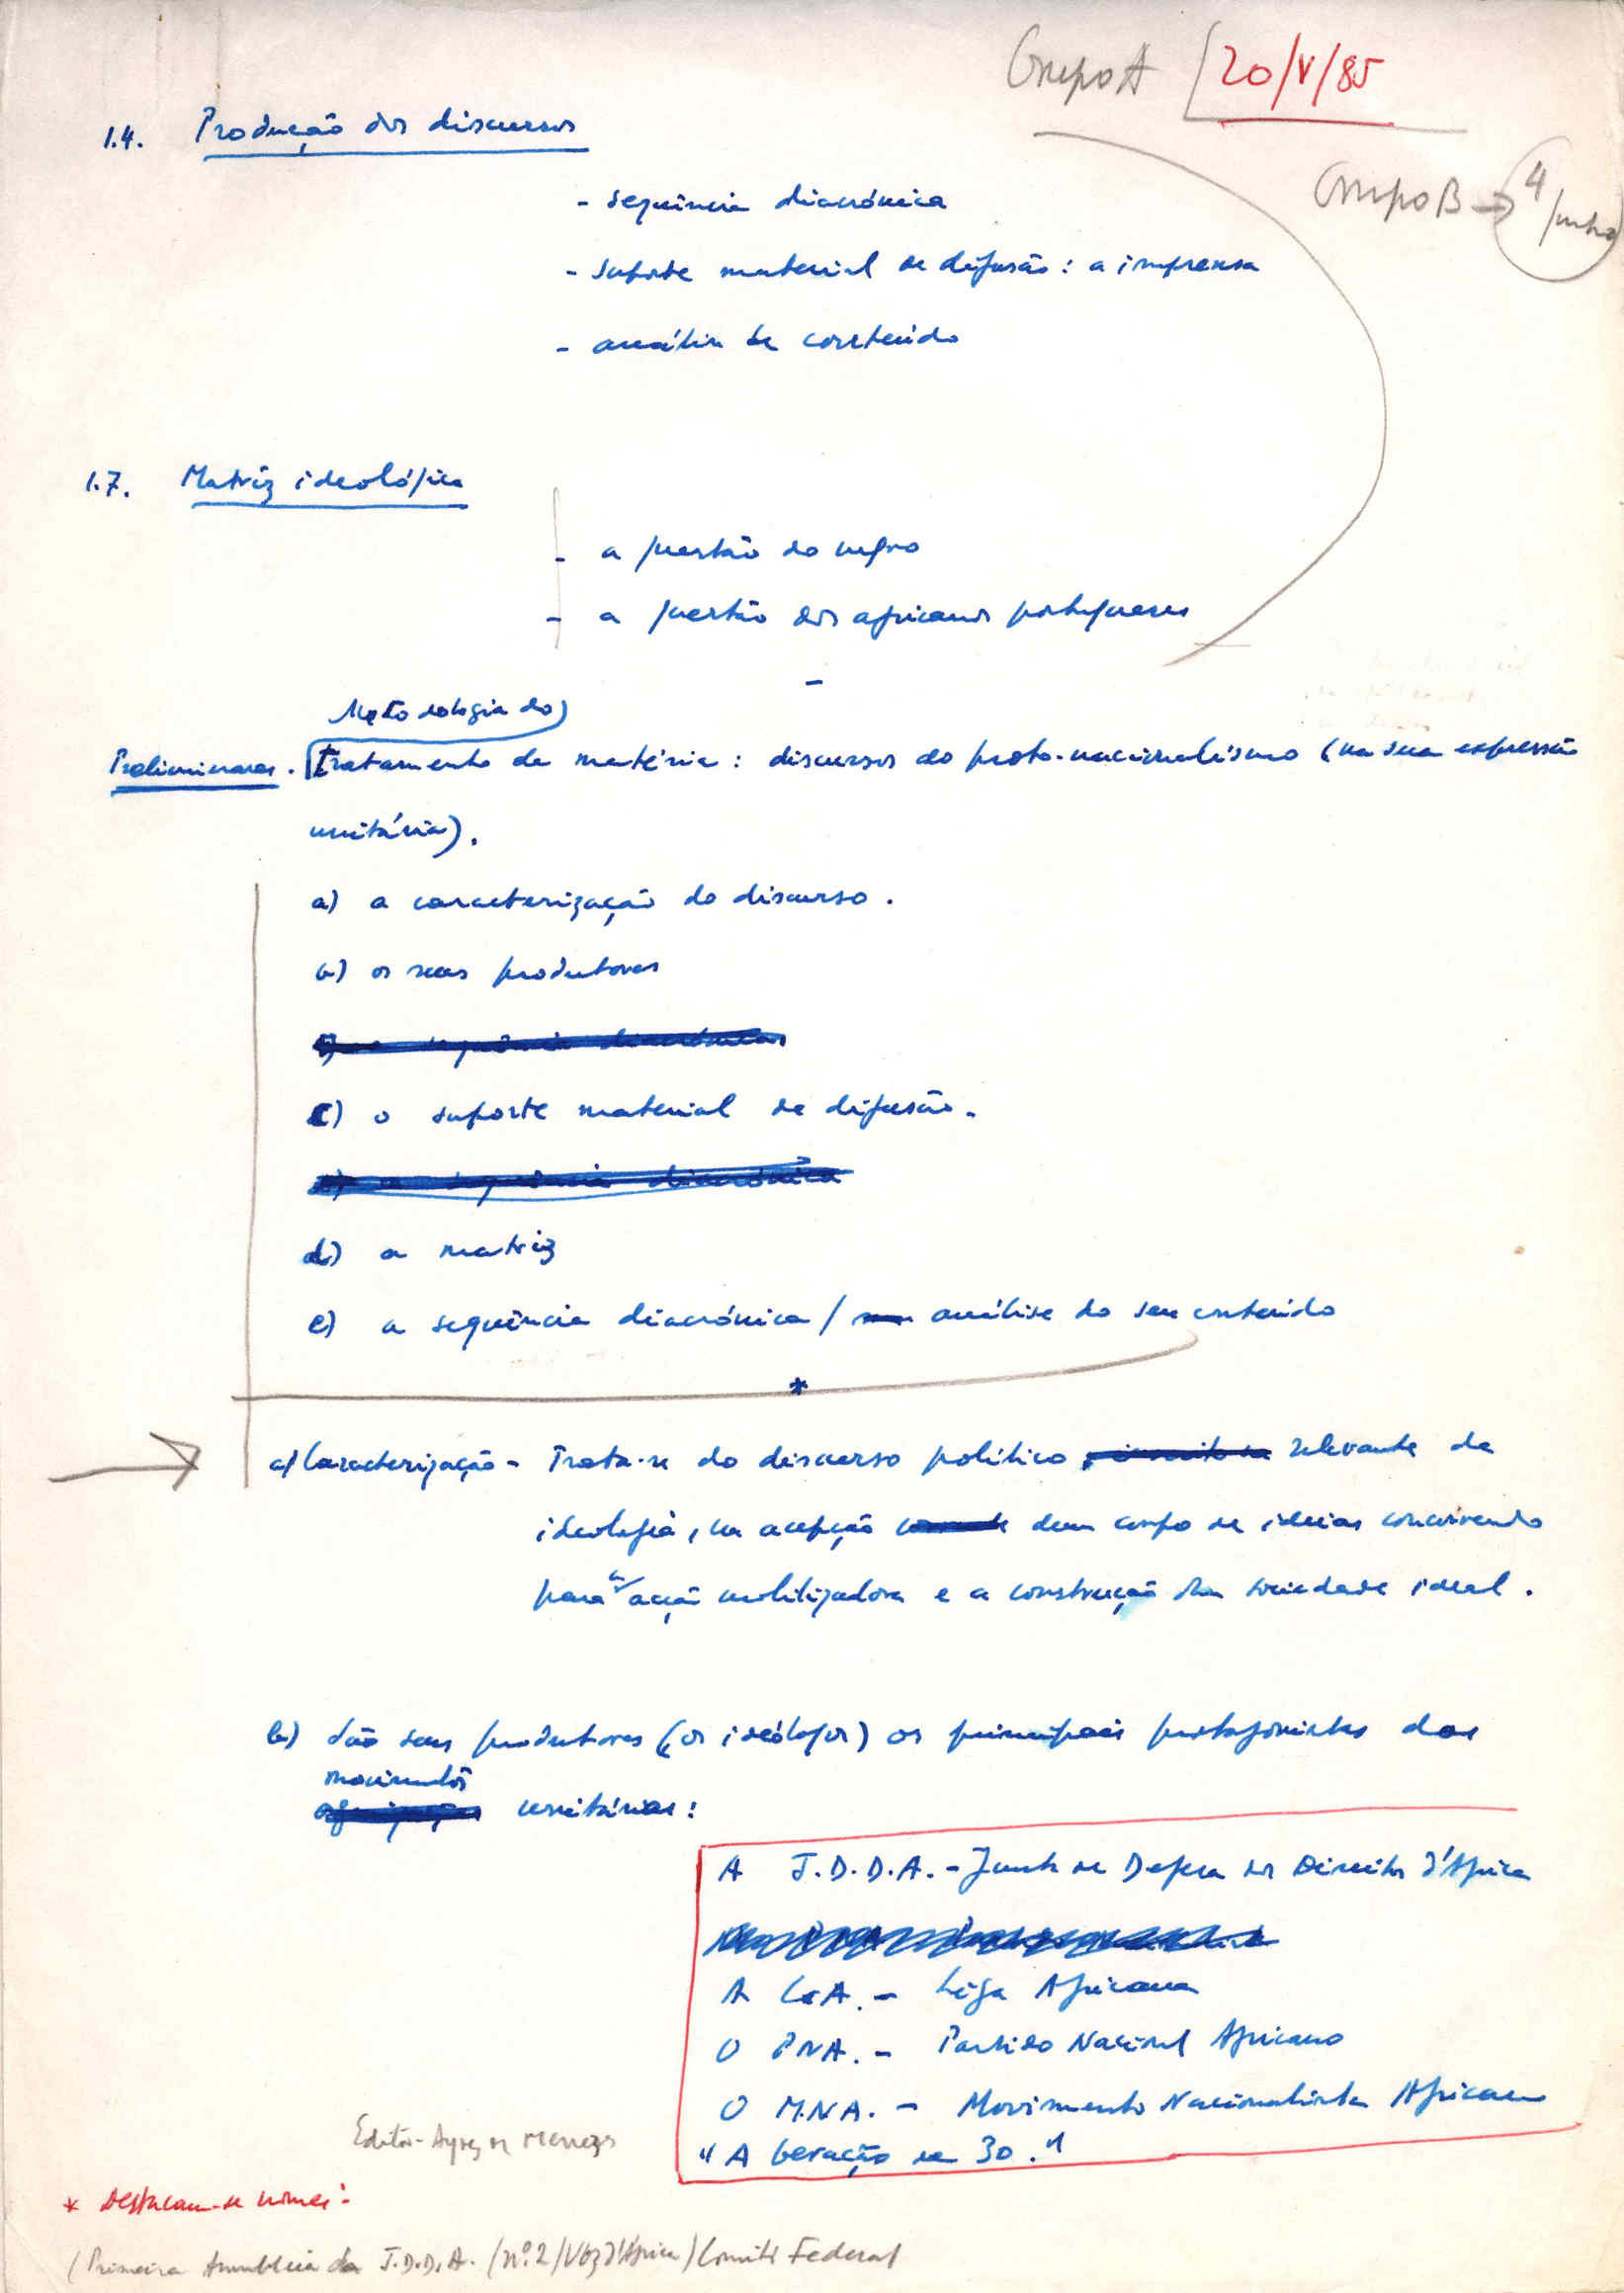 Grupo A [20/V/85
1.4. Produção dos discursos
Grupo B → 4/junho
- sequência diacrónica
- suporte material de difusão: a imprensa
- análise de conteúdo
1.7. Matriz ideológica
- a questão do negro
- a questão dos africanos portugueses
-
Metodologia do
Preliminares. Tratamento da matéria: discursos do proto-nacionalismo (na sua expressão
unitária).
a) a caracterização do discurso.
b) os seus produtores
a sequência diacrónica
c) o suporte material de difusão.
a sequência diacrónica
d) a matriz
e) a sequência diacrónica / análise do seu conteúdo
*
a) Caracterização - Trata-se do discurso político relevante da
ideologia, na acepção dum corpo de ideias concorrendo
para a acção mobilizadora e a construção duma sociedade ideal.
b) São seus produtores (os ideólogos) os principais protagonistas dos
movimentos
unitários:
A J.D.D.A. - Junta de Defesa dos Direitos d'África
A L.A. - Liga Africana
O PNA. - Partido Nacional Africano
O M.N.A. - Movimento Nacionalista Africano
"A Geração de 30."
Editor - Ayres de Menezes
* Destacam-se nomes:
(Primeira Assembleia da J.D.D.A. (nº. 2 / Voz d'África) Comité Federal